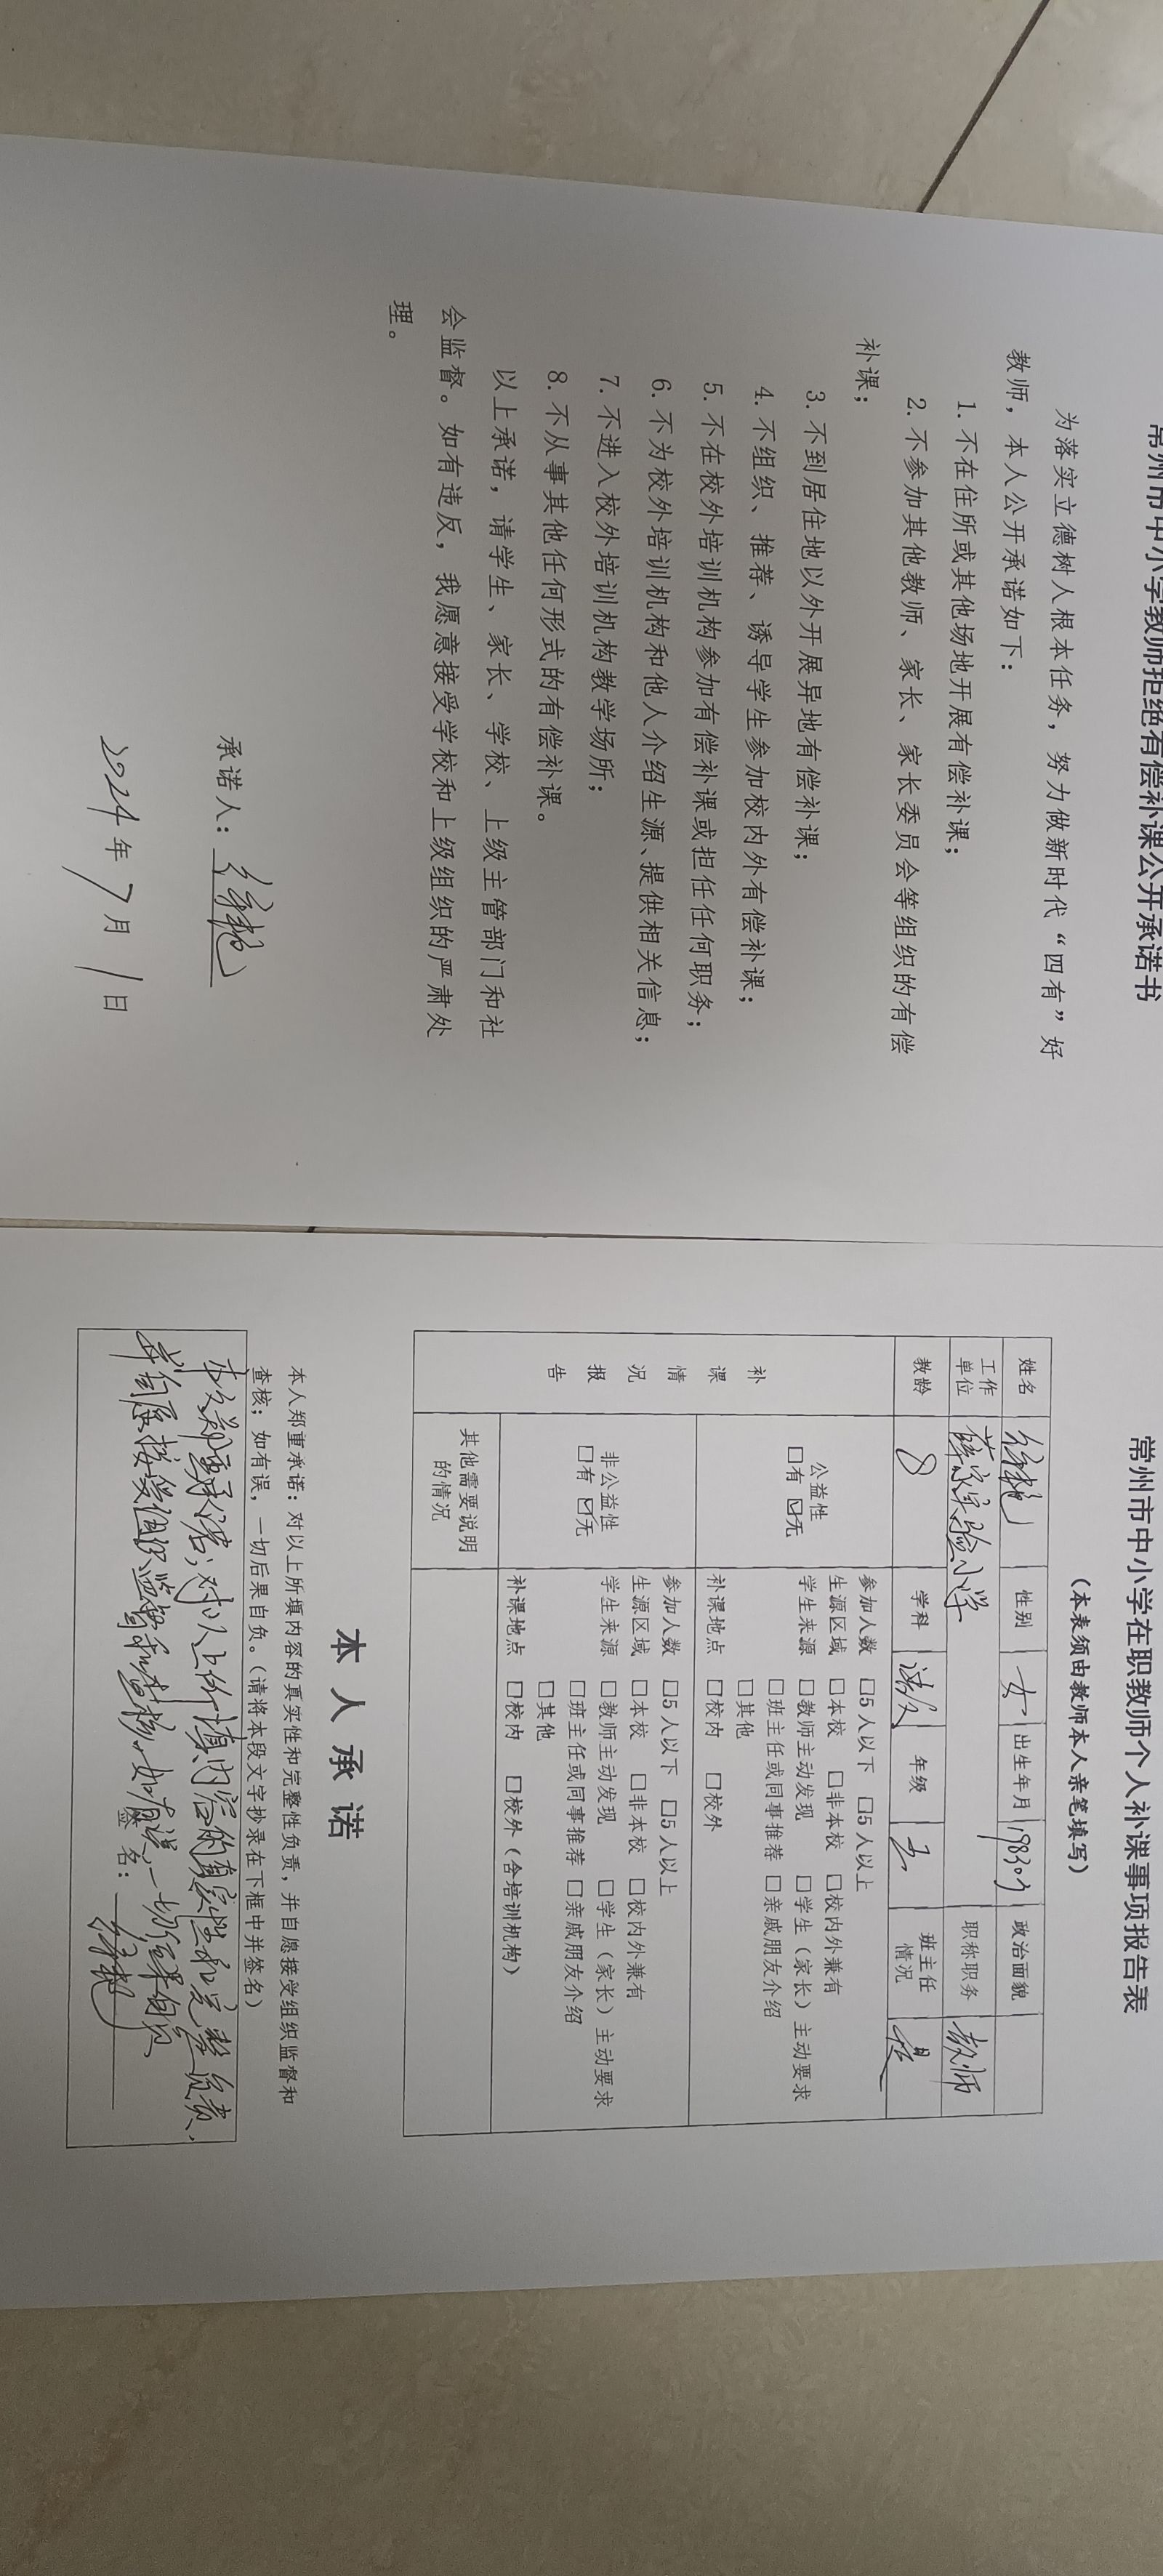 常州市中小学教师拒绝有偿补课公开承诺书
为落实立德树人根本任务，努力做新时代“四有”好
教师，本人公开承诺如下：
1. 不在住所或其他场地开展有偿补课；
2. 不参加其他教师、家长、家长委员会等组织的有偿
补课；
3. 不到居住地以外开展异地有偿补课；
4. 不组织、推荐、诱导学生参加校内外有偿补课；
5. 不在校外培训机构参加有偿补课或担任任何职务；
6. 不为校外培训机构和他人介绍生源、提供相关信息；
7. 不进入校外培训机构教学场所；
8. 不从事其他任何形式的有偿补课。
以上承诺，请学生、家长、学校、上级主管部门和社
会监督。如有违反，我愿意接受学校和上级组织的严肃处
理。
承诺人：徐艳
2024年7月1日
常州市中小学在职教师个人补课事项报告表
（本表须由教师本人亲笔填写）
姓名 徐艳 性别 女 出生年月 1983.07 政治面貌
工作单位 薛家实验小学 职称职务 教师
教龄 8 学科 语文 年级 班主任情况
补课情况报告
公益性
□有 ☑无
参加人数 □5人以下 □5人以上
生源区域 □本校 □非本校 □校内外兼有
学生来源 □教师主动发现 □学生（家长）主动要求
□班主任或同事推荐 □亲戚朋友介绍
□其他
补课地点 □校内 □校外
非公益性
□有 ☑无
参加人数 □5人以下 □5人以上
生源区域 □本校 □非本校 □校内外兼有
学生来源 □教师主动发现 □学生（家长）主动要求
□班主任或同事推荐 □亲戚朋友介绍
□其他
补课地点 □校内 □校外（含培训机构）
其他需要说明的情况
本人承诺
本人郑重承诺：对以上所填内容的真实性和完整性负责，并自愿接受组织监督和
查核；如有误，一切后果自负。（请将本段文字抄录在下框中并签名）
本人郑重承诺：对以上所填内容的真实性和完整负责，
并自愿接受组织监督和查核。如有误，一切后果自负
签名：徐艳